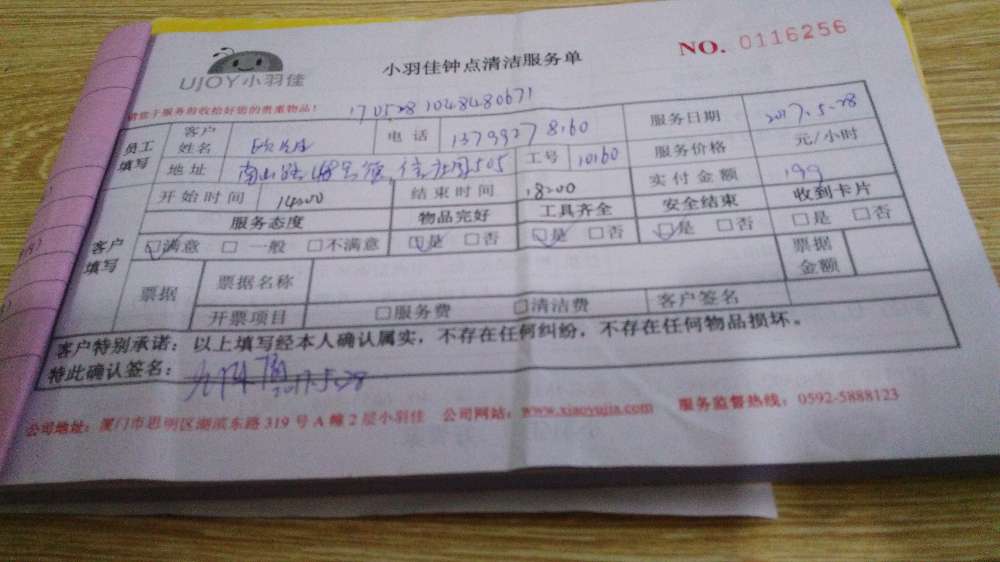 UJOY小羽佳
小羽佳钟点清洁服务单
NO. 0116256
请您于服务前收拾好您的贵重物品!
170528 1048480671
员工填写
客户姓名
电话
服务日期 2017.5.28
地址
505
工号 10160
服务价格 元/小时
开始时间 14:00
结束时间 18:00
实付金额 199
客户填写
服务态度 物品完好 工具齐全 安全结束 收到卡片
☑满意 □一般 □不满意 ☑是 □否 ☑是 □否 ☑是 □否 □是 □否
票据
票据名称
票据金额
开票项目 □服务费 □清洁费 客户签名
客户特别承诺:以上填写经本人确认属实,不存在任何纠纷,不存在任何物品损坏。
特此确认签名:
2017.5.28
公司地址:厦门市思明区湖滨东路319号A幢2层小羽佳 公司网站:www.xiaoyujia.com 服务监督热线:0592-5888123